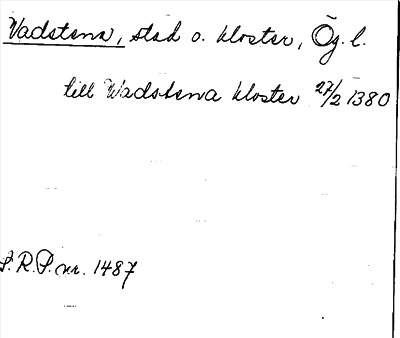 Vadstena, stad o. kloster, Ög. l.
till Wadstena kloster 27/2 1380
S. R. P. nr. 1487